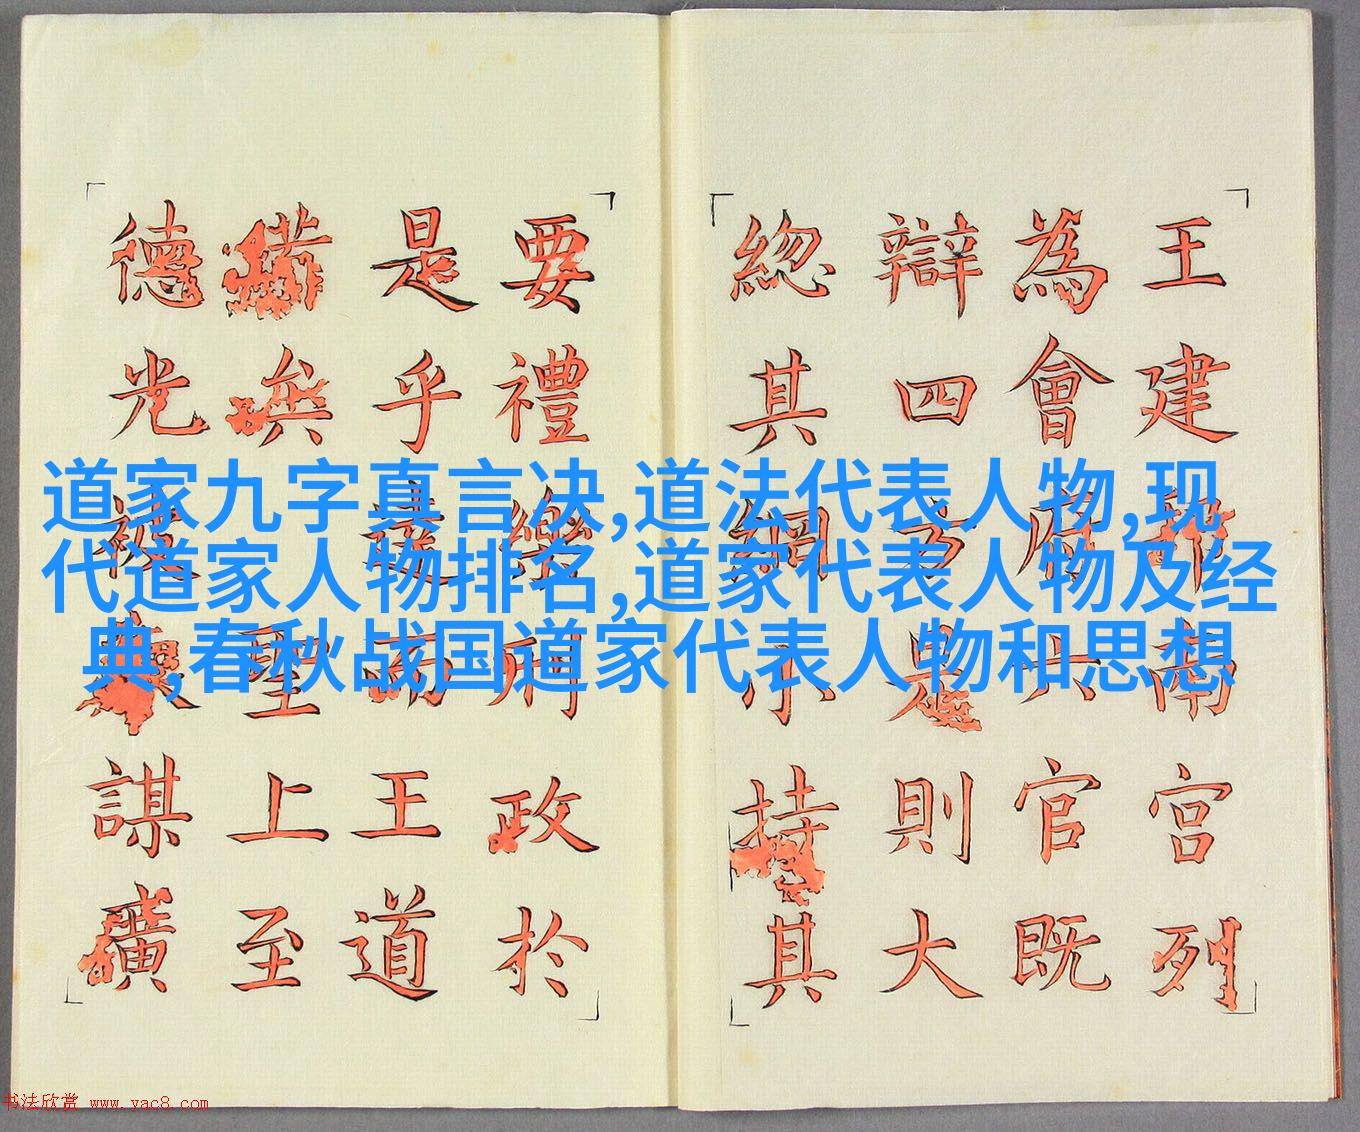 道家九字真言决,道法代表人物,现
代道家人物排名,道家代表人物及经
典,春秋战国道家代表人物和思想
王建邦南宮列
為會府六官既
辯四方是則大
緫其綱小持其
要禮樂刑政於
是乎達而王道
備矣聖上至
德光被謀廣
书法欣赏 www.yac8.com